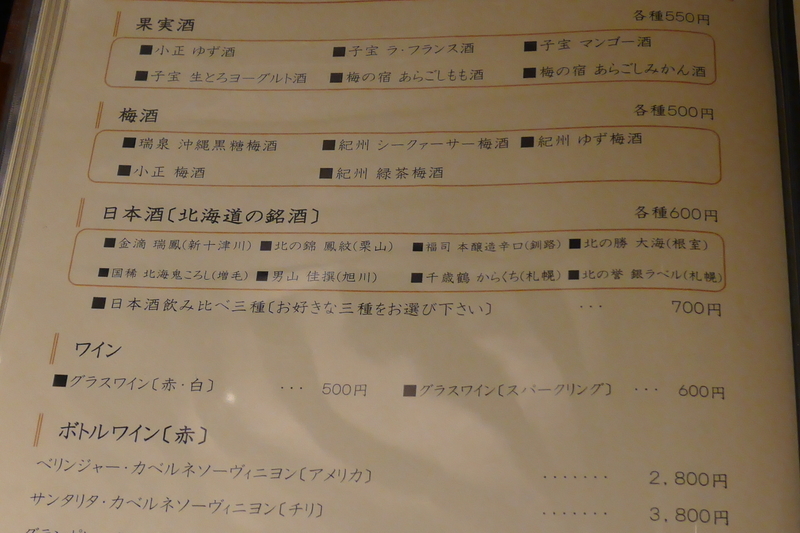 果実酒 各種550円
■小正 ゆず酒 ■子宝 ラ・フランス酒 ■子宝 マンゴー酒
■子宝 生とろヨーグルト酒 ■梅の宿 あらごしもも酒 ■梅の宿 あらごしみかん酒
梅酒 各種500円
■瑞泉 沖縄黒糖梅酒 ■紀州 シークァーサー梅酒 ■紀州 ゆず梅酒
■小正 梅酒 ■紀州 緑茶梅酒
日本酒〔北海道の銘酒〕 各種600円
■金滴 瑞鳳(新十津川) ■北の錦 鳳紋(栗山) ■福司 本醸造辛口(釧路) ■北の勝 大海(根室)
■国稀 北海鬼ころし(増毛) ■男山 佳撰(旭川) ■千歳鶴 からくち(札幌) ■北の誉 銀ラベル(札幌)
■日本酒飲み比べ三種〔お好きな三種をお選び下さい〕 ・・・ 700円
ワイン
■グラスワイン〔赤・白〕 ・・・ 500円 ■グラスワイン〔スパークリング〕 ・・・ 600円
ボトルワイン〔赤〕
ベリンジャー・カベルネソーヴィニヨン〔アメリカ〕 ・・・・・・・ 2,800円
サンタリタ・カベルネソーヴィニヨン〔チリ〕 ・・・・・・・ 3,800円